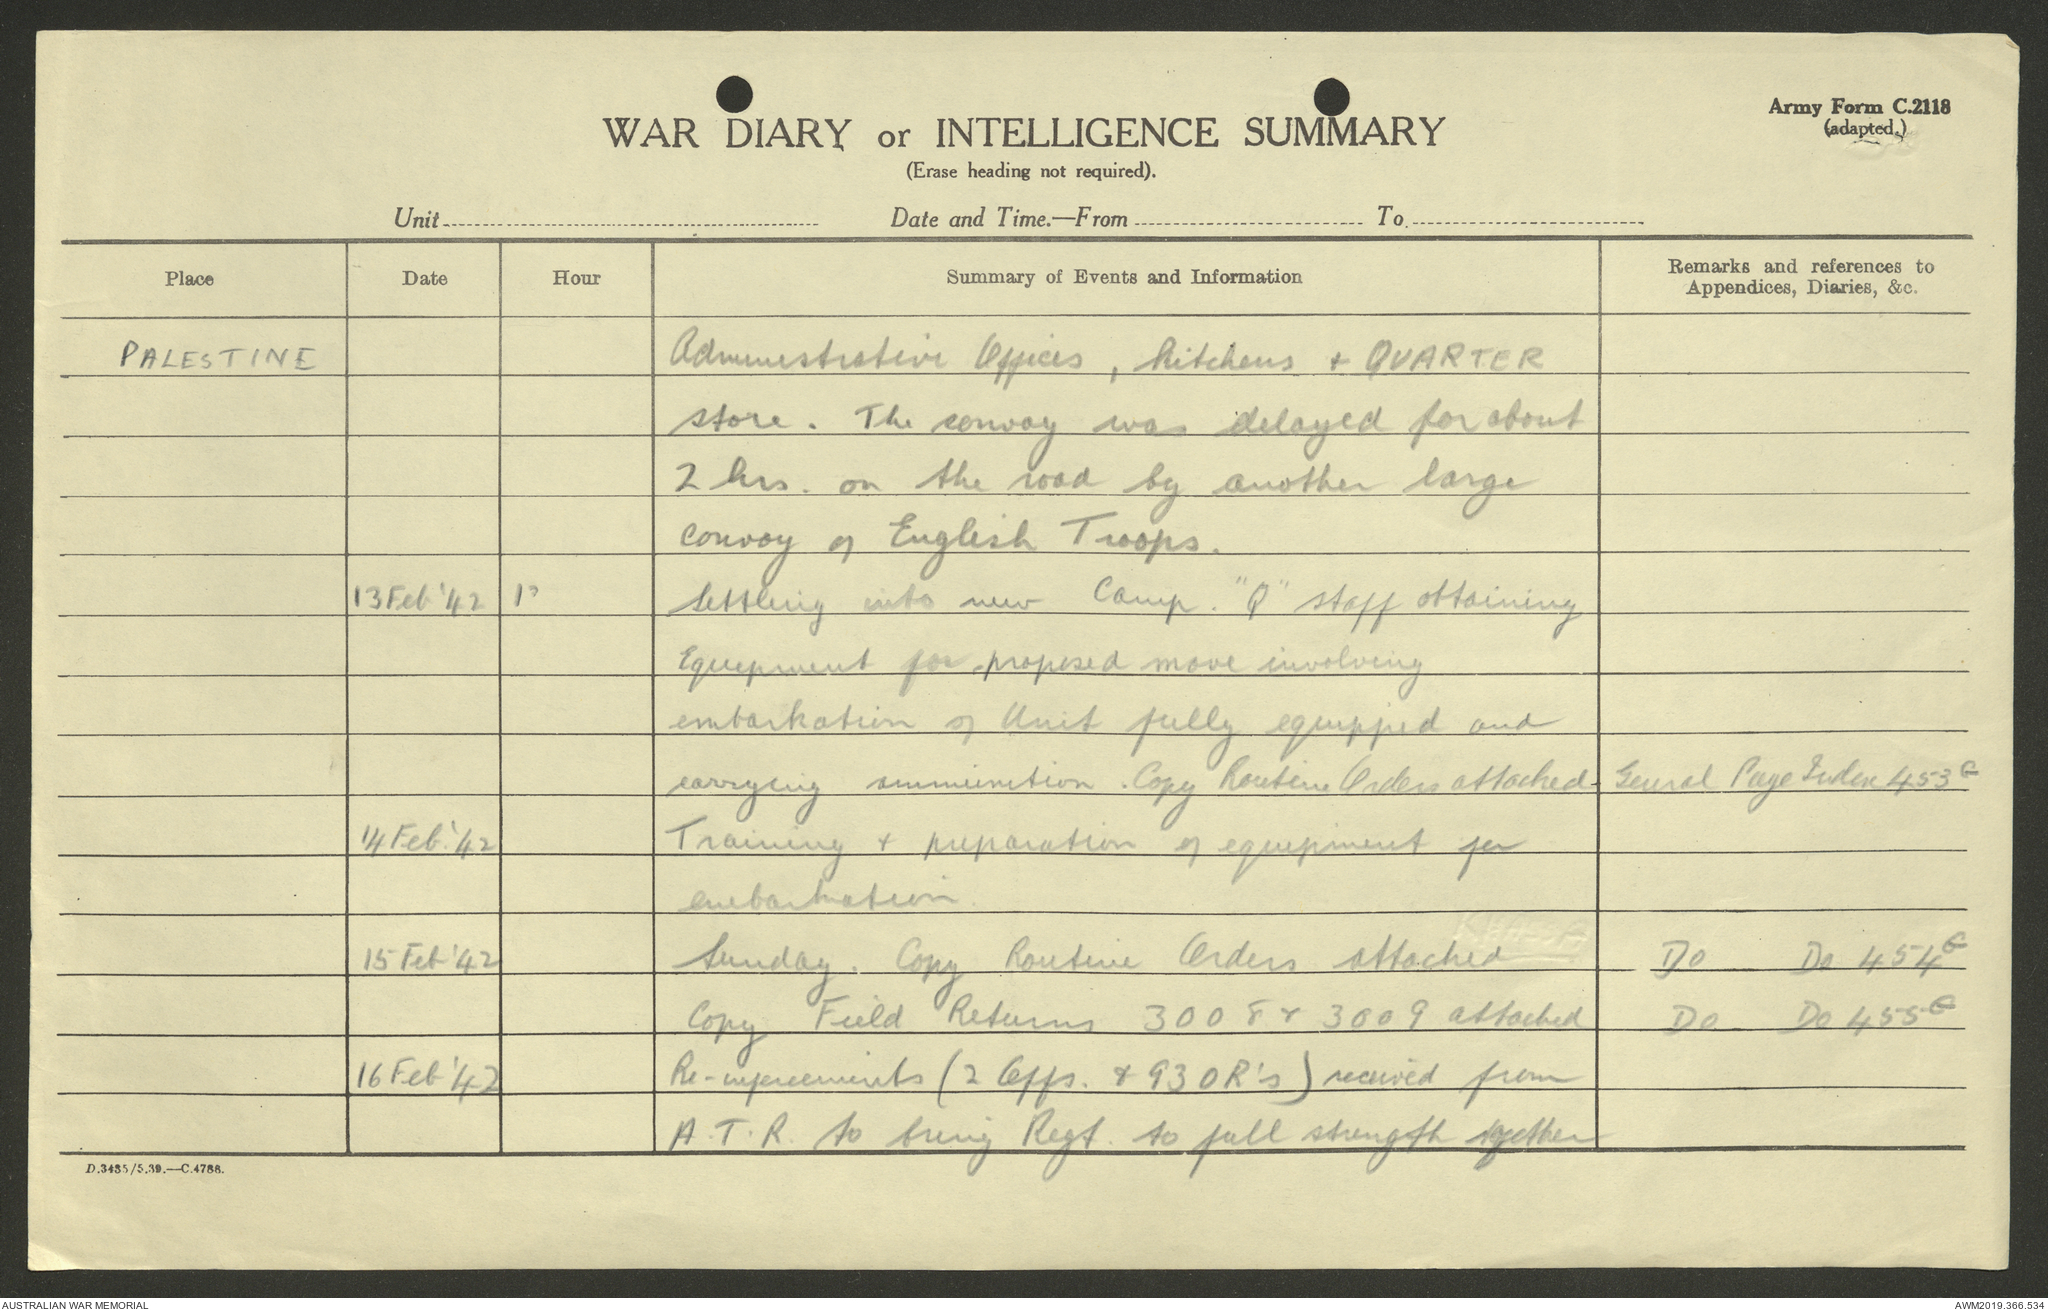 Army Form C.2118
(adapted.)
WAR DIARY or INTELLIGENCE SUMMARY
(Erase heading not required).
Unit Date and Time.—From To
Place Date Hour Summary of Events and Information Remarks and references to Appendices, Diaries, &c.
PALESTINE Administrative Offices, kitchens + QUARTER
store. The convoy was delayed for about
2 hrs. on the road by another large
convoy of English Troops.
13 Feb '42 Settling into new Camp. "Q" staff obtaining
Equipment for proposed move involving
embarkation of Unit fully equipped and
carrying ammunition. Copy Routine Orders attached General Page Index 453 G
14 Feb. '42 Training + preparation of equipment for
embarkation
15 Feb '42 Sunday. Copy Routine Orders attached Do Do 454 G
Copy Field Returns 3008 + 3009 attached Do Do 455 G
16 Feb '42 (2 Offs. + 93 OR's) received from
A.T.R. to bring Regt. to full strength together
D.3485/5.39.—C.4788.
AUSTRALIAN WAR MEMORIAL AWM2019.366.534